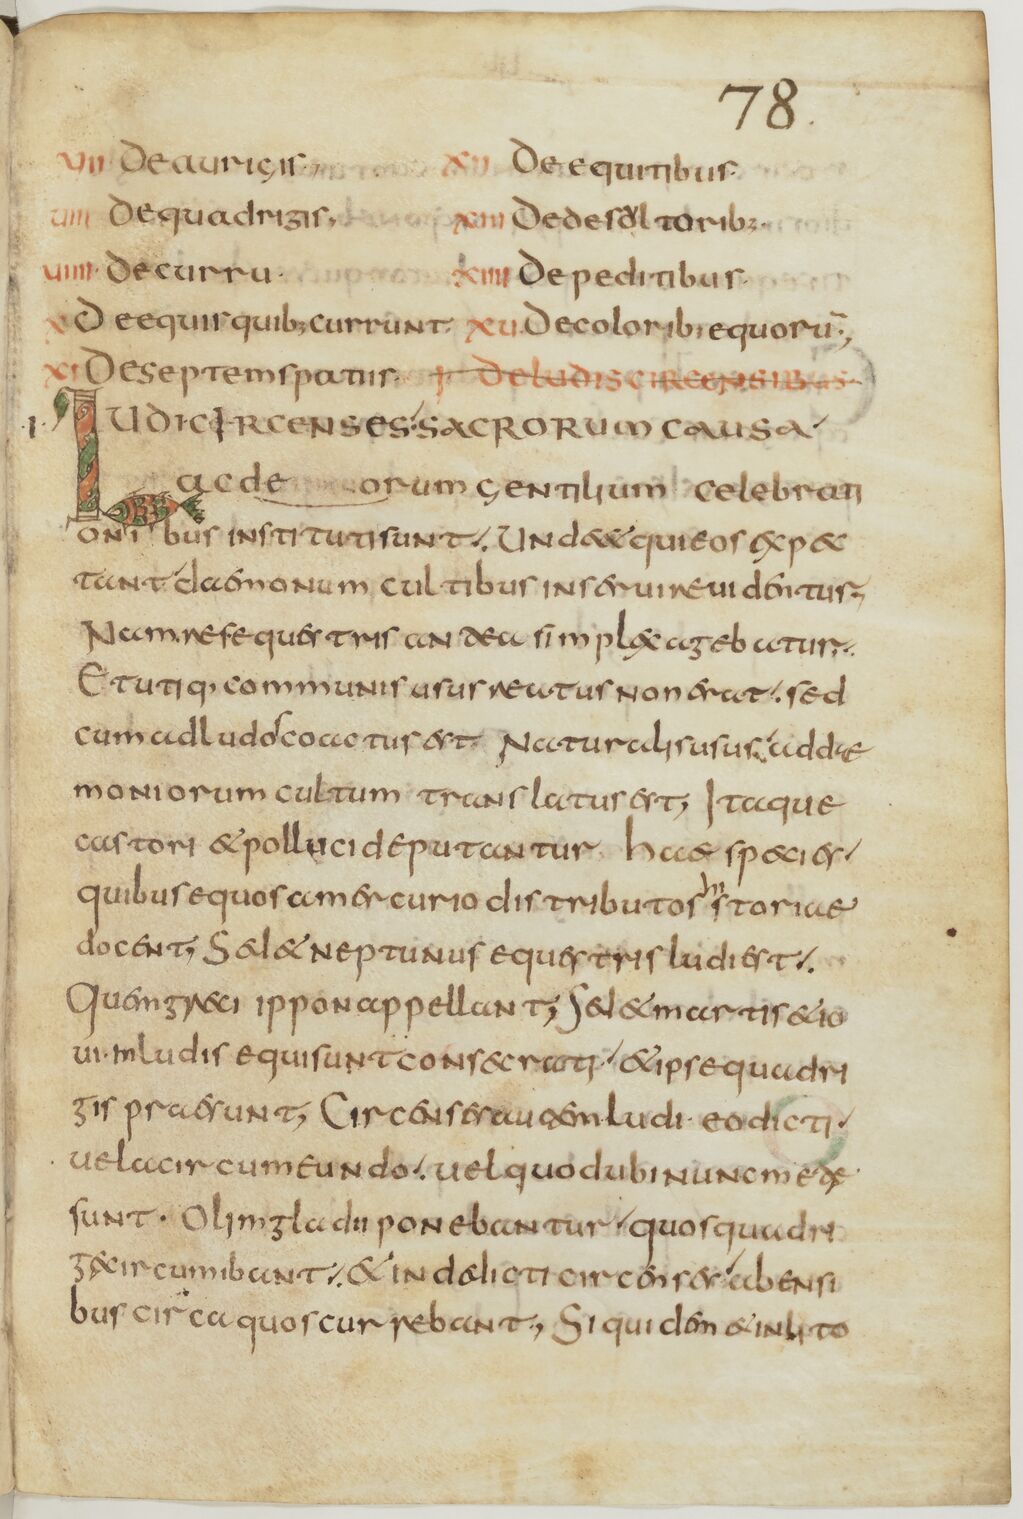 78.
VII De aurigis. XII De equitibus.
VIII De quadrigis. XIII De desultorib;
VIIII De curru. XIIII De peditibus.
X De equis quib; currunt. XV De colorib; equorū.
XI De septem spatiis. I De ludis circensibus
I LUDI CIRCENSES SACRORUM CAUSA
ac de orum gentilium celebrati
onibus instituti sunt. Unde & qui eos exspec
tant daemonum cultibus inservire videntur;
Nam res equestris an dea simplex agebatur;
Et utiq; communis usus reatus non erat. sed
cum ad ludos coactus est. Naturalis usus, ad dae
moniorum cultum translatus est; Itaque
castori & polluci deputantur hae species
quibus equos a mercurio distributos historiae
docent; Sed & neptunus equestris ludi est.
Quem greci ippon appellant; Sed & martis & io
vi in ludis equi sunt consecrati & ipse quadri
gis praeest; Circenses autem ludi eo dicti
vel a circumeundo. vel quod ubi nunc mete
sunt. Olim gladii ponebantur quos quadri
ge circumibant. & inde dicti circenses ab ensi
bus circa quos currebant; Siquidem & in lito